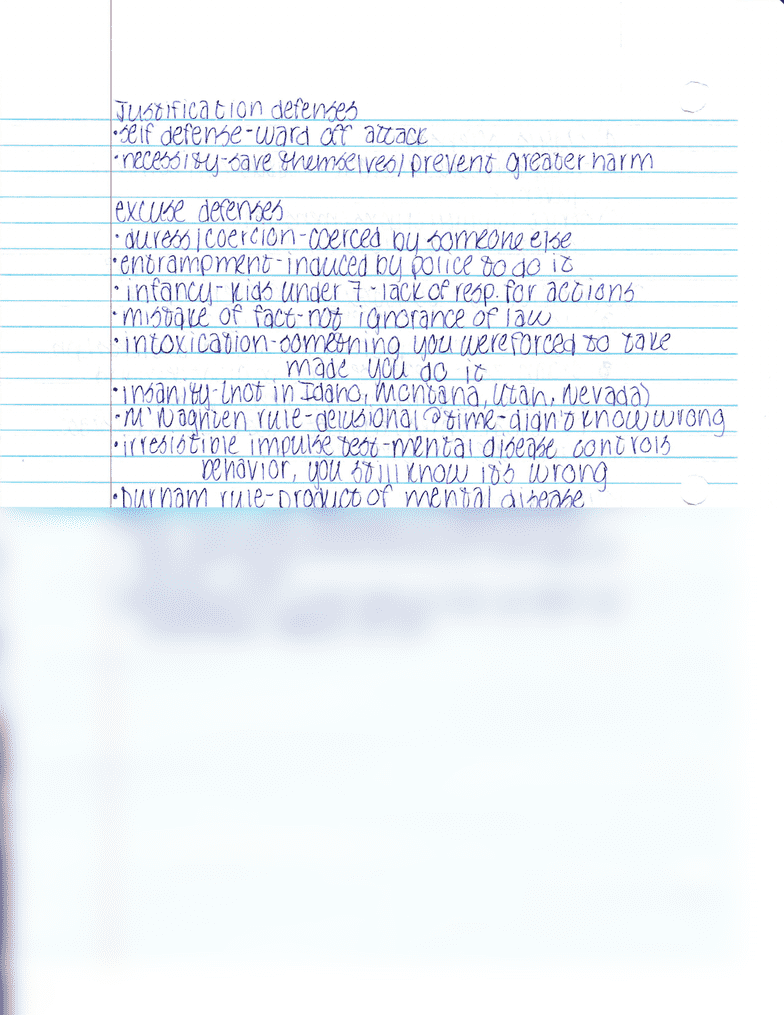 Justification defenses
·self defense-ward off attack
·necessity-save themselves/prevent greater harm
excuse defenses
·duress/coercion-coerced by someone else
·entrampment-induced by police to do it
·infancy-kids under 7-lack of resp. for actions
·mistake of fact-not ignorance of law
·intoxication-something you were forced to take
made you do it
·insanity-(not in Idaho, Montana, Utah, Nevada)
·M'Naghten rule-delusional @ time-didn't know wrong
·irresistible impulse test-mental disease controls
behavior, you still know it's wrong
·Durham rule-product of mental disease